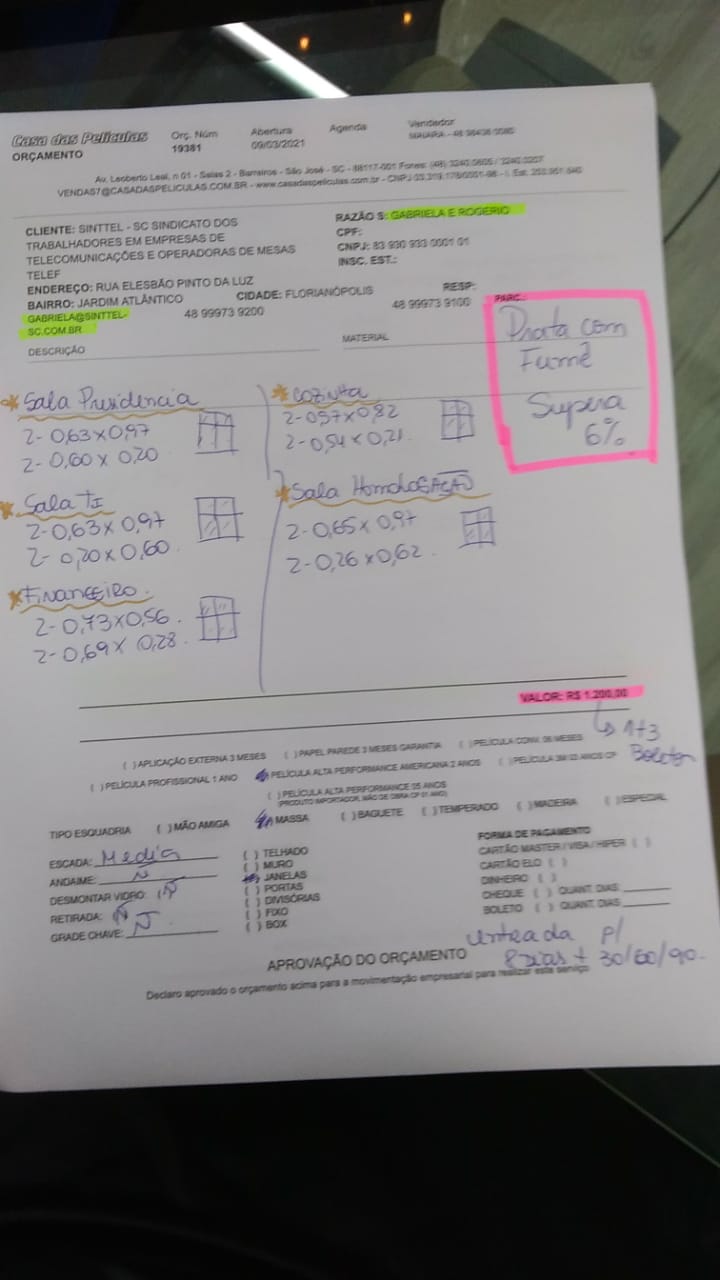 Casa das Películas
ORÇAMENTO
Orç. Núm
19381
Abertura
09/03/2021
Agenda
Vendedor
Av. Leoberto Leal, n 01 - Salas 2 - Barreiros - São José - SC - 88117-001 Fones: (48) 3240.0605 / 3240.0207
VENDAS7@CASADASPELICULAS.COM.BR - www.casadaspeliculas.com.br - CNPJ
CLIENTE: SINTTEL - SC SINDICATO DOS
TRABALHADORES EM EMPRESAS DE
TELECOMUNICAÇÕES E OPERADORAS DE MESAS
TELEF
ENDEREÇO: RUA ELESBÃO PINTO DA LUZ
BAIRRO: JARDIM ATLÂNTICO
CIDADE: FLORIANÓPOLIS
GABRIELA@SINTTEL-
SC.COM.BR
48 99973 9200
RAZÃO S: GABRIELA E ROGÉRIO
CPF:
CNPJ: 83 930 933 0001 01
INSC. EST.:
RESP:
48 99973 9100
PARC.:
DESCRIÇÃO
MATERIAL
Prata com
Fumê
Supera
6%
Sala Presidencia
2- 0,63x0,97
2- 0,60 x 0,20
Sala TI
2-0,63x 0,97
2- 0,20x0,60
Financeiro.
2-0,73x0,56.
2-0,69x 0,28.
Cozinha
2-0,97x0,82
2-0,54x0,21
Sala Homologação
2-0,65x0,97
2-0,26x0,62.
VALOR: R$ 1.200,00
1+3
Boletos
( ) APLICAÇÃO EXTERNA 3 MESES ( ) PAPEL PAREDE 3 MESES GARANTIA ( ) PELÍCULA CONV. 06 MESES
( ) PELÍCULA PROFISSIONAL 1 ANO PELÍCULA ALTA PERFORMANCE AMERICANA 2 ANOS ( ) PELÍCULA 3M
( ) PELÍCULA ALTA PERFORMANCE 05 ANOS
(PRODUTO IMPORTADOR, MÃO DE OBRA CP 01 ANO)
TIPO ESQUADRIA ( ) MÃO AMIGA MASSA ( ) BAGUETE ( ) TEMPERADO ( ) MADEIRA ( ) ESPECIAL
ESCADA: Media
ANDAIME: N
DESMONTAR VIDRO: N
RETIRADA: N
GRADE CHAVE: N
( ) TELHADO
( ) MURO
JANELAS
( ) PORTAS
( ) DIVISÓRIAS
( ) FIXO
( ) BOX
FORMA DE PAGAMENTO
CARTÃO MASTER / VISA / HIPER ( )
CARTÃO ELO ( )
DINHEIRO ( )
CHEQUE ( ) QUANT. DIAS:
BOLETO ( ) QUANT. DIAS
entrada p/
8 dias + 30/60/90.
APROVAÇÃO DO ORÇAMENTO
Declaro aprovado o orçamento acima para a movimentação empresarial para realizar este serviço